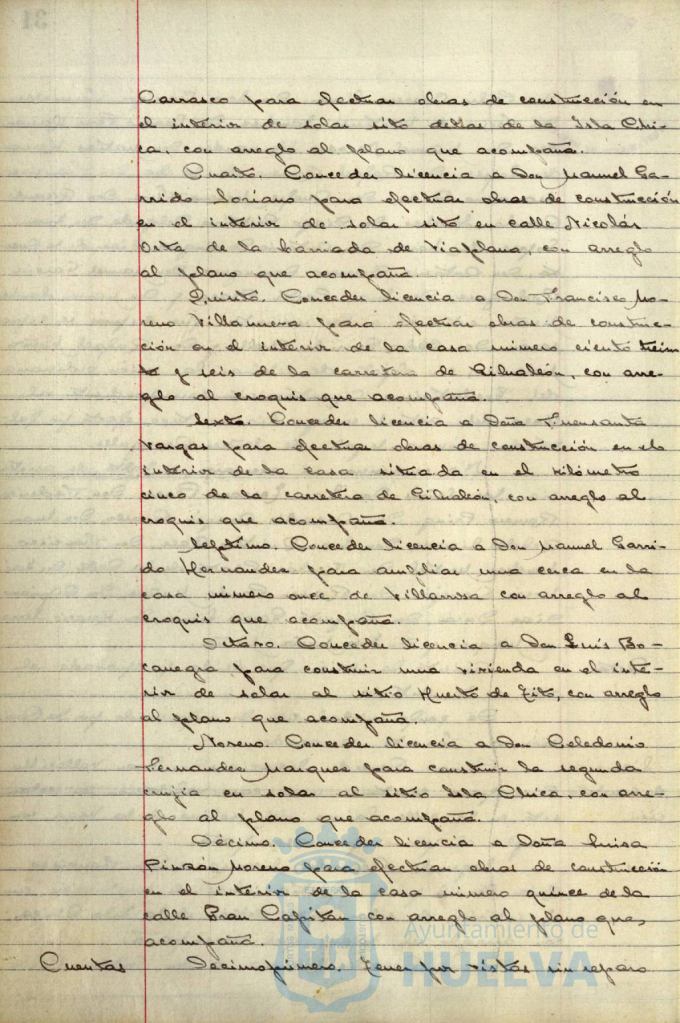 31
Carrasco para efectuar obras de construcción en
el interior de solar sito detras de la Isla Chi-
ca, con arreglo al plano que acompaña.
Cuarto. Conceder licencia a Don Manuel Ga-
rrido Soriano para efectuar obras de construcción
en el interior de solar sito en calle Nicolás
Orta de la barriada de Viaplana, con arreglo
al plano que acompaña.
Quinto. Conceder licencia a Don Francisco Mo-
reno Villanueva para efectuar obras de construc-
ción en el interior de la casa número ciento trein
ta y seis de la carretera de Gibraleón, con arre-
glo al croquis que acompaña.
Sexto. Conceder licencia a Doña Fuensanta
Vargas para efectuar obras de construcción en el
interior de la casa situada en el kilómetro
cinco de la carretera de Gibraleón, con arreglo al
croquis que acompaña.
Séptimo. Conceder licencia a Don Manuel Garri-
do Hernandez para ampliar una cerca en la
casa número once de Villarrosa con arreglo al
croquis que acompaña.
Octavo. Conceder licencia a Don Luís Bo-
canegra para construir una vivienda en el inte-
rior de solar al sitio Huerto de Tito, con arreglo
al plano que acompaña.
Noveno. Conceder licencia a Don Celedonio
Fernandez Marquez para construir la segunda
crujia en solar al sitio Isla Chica, con arre-
glo al plano que acompaña.
Décimo. Conceder licencia a Doña Luisa
Pinzón Moreno para efectuar obras de construcción
en el interior de la casa número quince de la
calle Gran Capitán con arreglo al plano que,
acompaña.
Cuentas Decimoprimero. Tener por vistas sin reparo
Ayuntamiento de
HUELVA